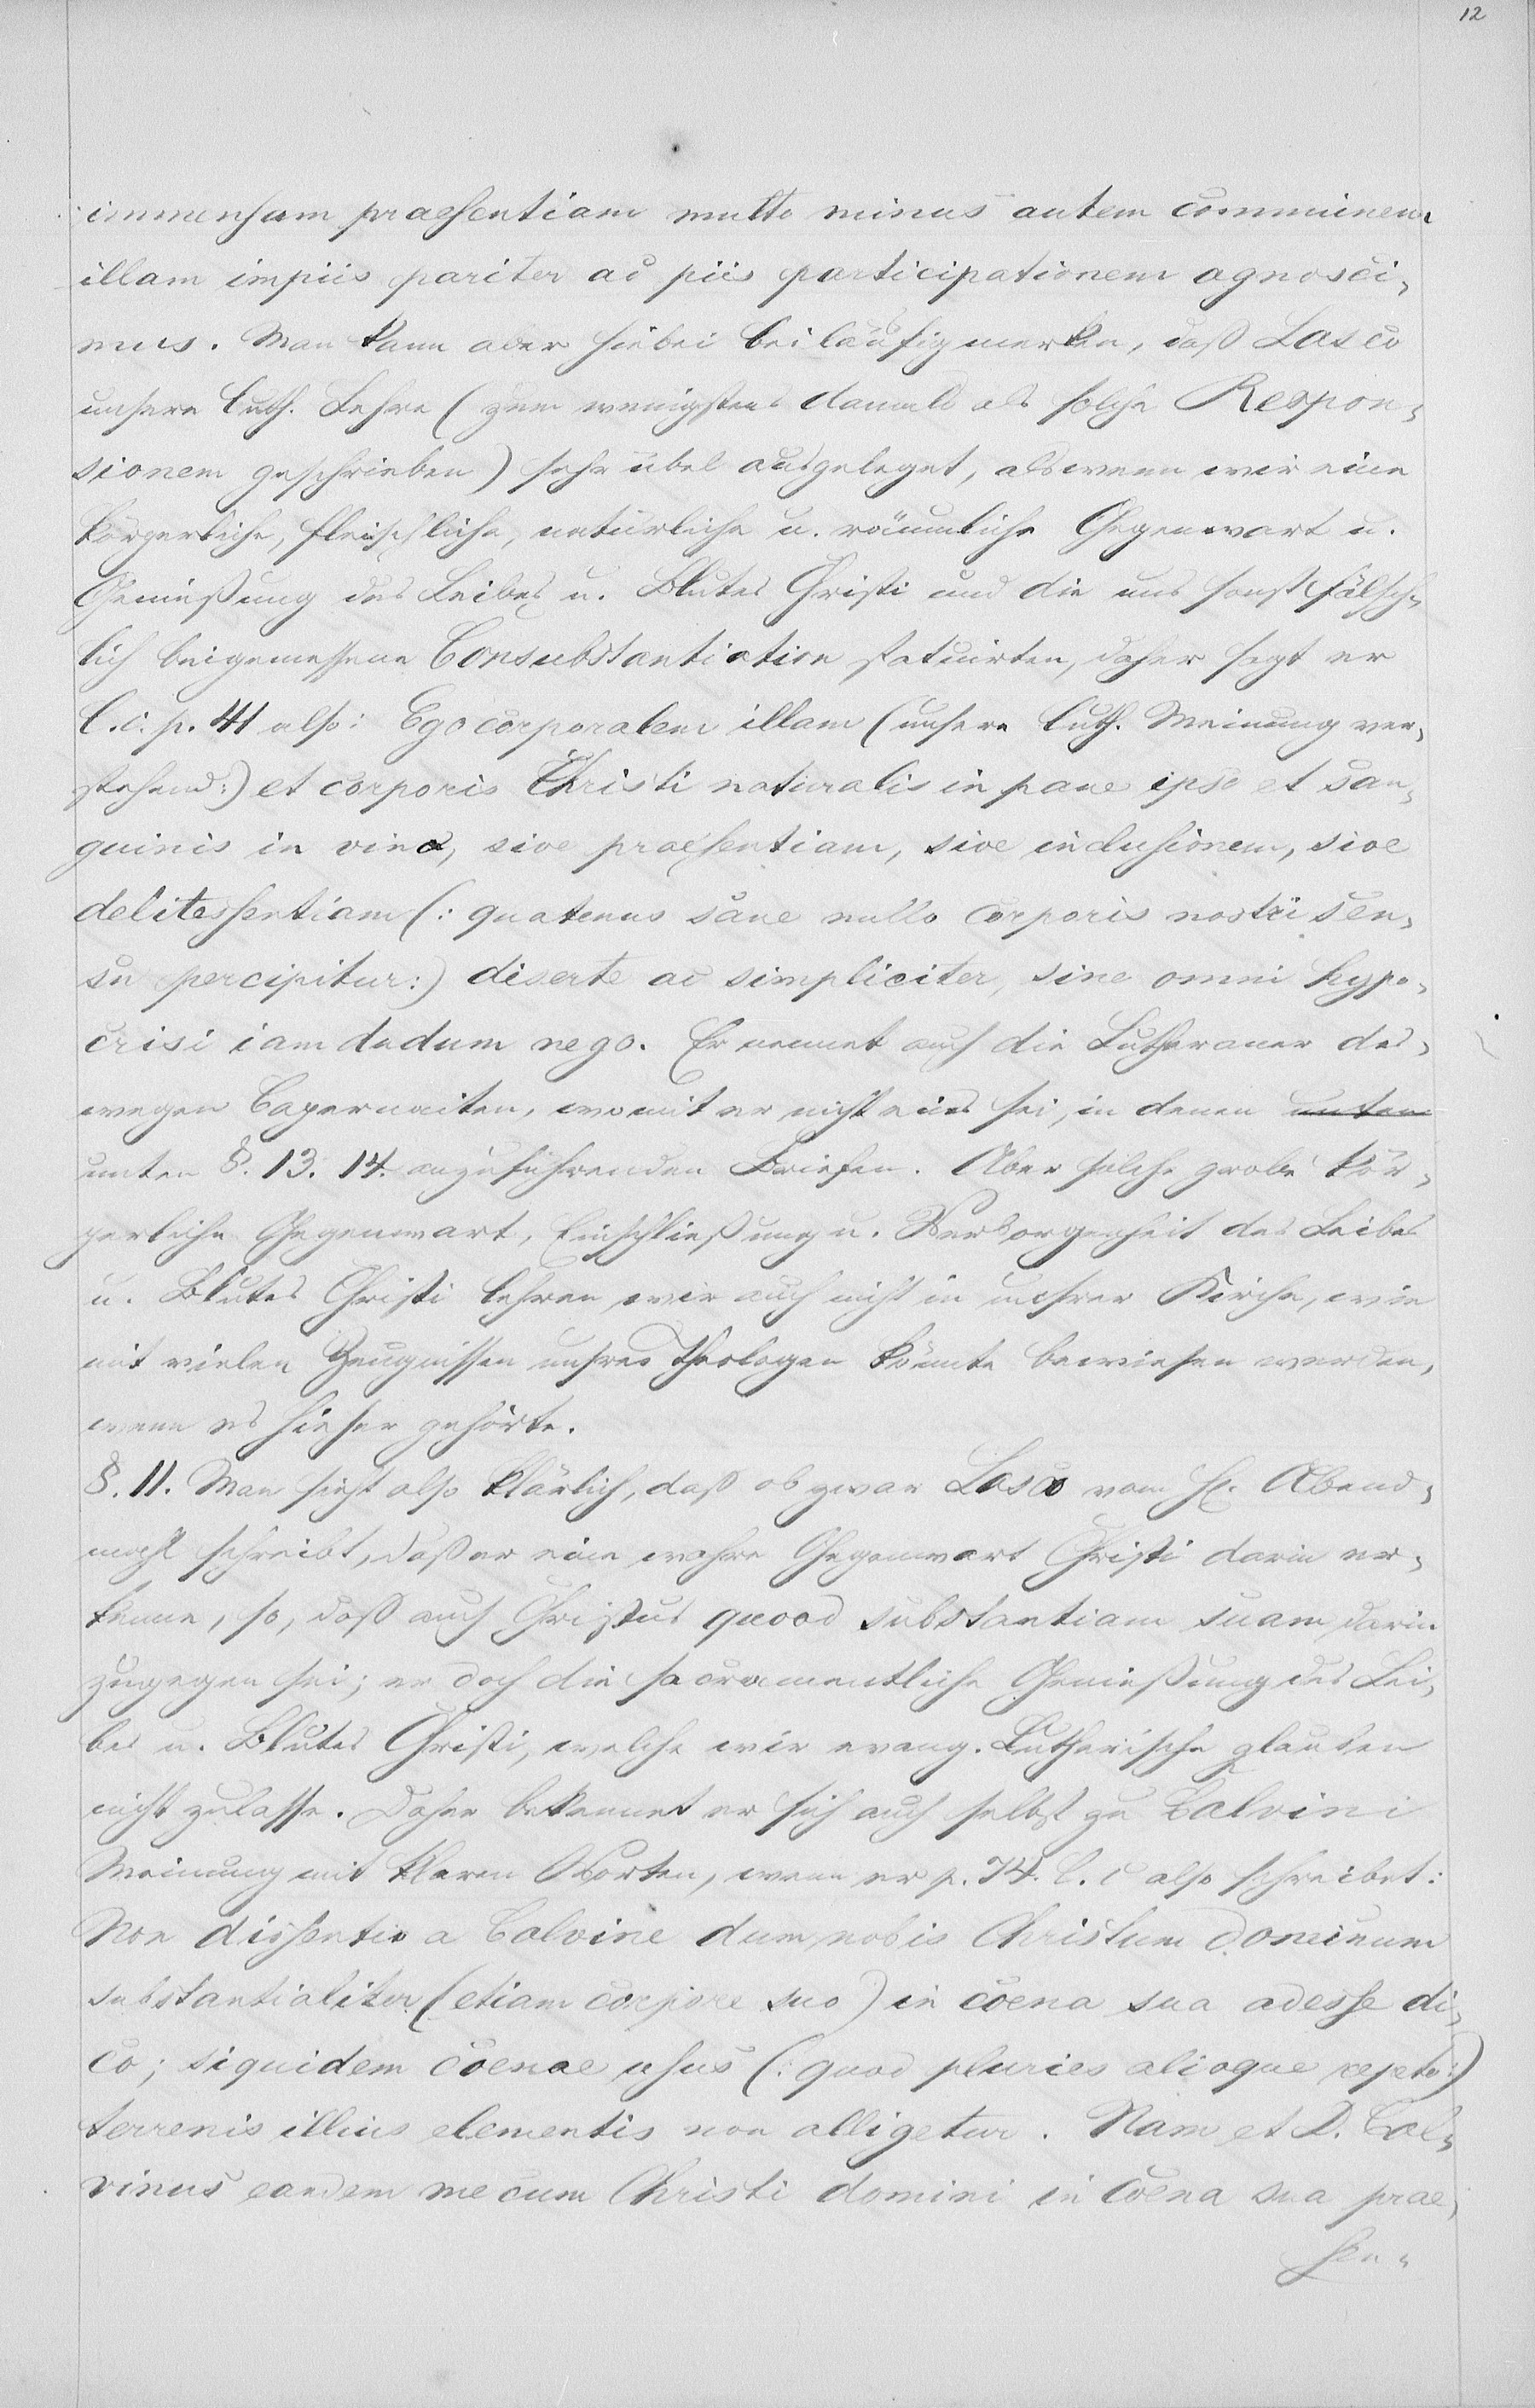 12
immensam praesentiam multo minus autem communem
illam impiis pariter ac piis participationem agnosci-
mus. Man kann aber hiebei beiläufig merken, daß Lasco
unsere luth. Lehre (zum wenigsten damals als solche Respon-
sionem geschrieben) sehr übel ausgeleget, als wenn wir eine
körperliche, fleischliche, natürliche u. räumliche Gegenwart u.
Genießung des Leibes u. Blutes Christi und die uns sonst fälsch-
lich beigemessene Consubstantiation statuirten, daher sagt er
l. c. p. 41 also: Ego corporalem illam (unsere luth. Meinung ver-
stehend:) et corporis Christi naturalis in pane ipso et san-
guinis in vino, sive praesentiam, sive inclusionem, sive
delitessentiam (: quatenus sane nullo corporis nostri sen-
su percipitur:) diserte ac simpliciter, sine omni hypo-
crisi iam dudum nego. Er nennet auch die Lutheraner des-
wegen Capernaiten, womit er nicht eins sei, in denen unten
unten §. 13. 14. anzuführenden Briefen. Aber solche grobe kör-
perliche Gegenwart, Einschließung u. Verborgenheit des Leibes
u. Blutes Christi lehren wir auch nicht in unsrer Kirche, wie
mit vielen Zeugnissen unsres Theologen könnte bewiesen werden,
wenn es hieher gehörte.
§. 11. Man sieht also klärlich, daß ob zwar Lasco vom H. Abend-
mahl schreibt, daß er eine wahre Gegenwart Christi darin er-
kenne, so, daß auch Christus quoad substantiam suam darin
zugegen sei; er doch die sacramentliche Genießung des Lei-
bes u. Blutes Christi, welche wir evang. Lutherische glauben
nicht zulasse. Daher bekennet er sich auch selbst zu Calvini
Meinung mit klaren Worten, wenn er p. 74. l. c also schreibet:
Non dissentio a Calvino dum nobis Christum dominum
substantialiter (etiam corpore suo) in coena sua adesse di-
co; siquidem coenae usus (: quod pluries alioque repeto:)
terrenis illius elementis non alligetur. Nam et D. Cal-
vinus eandem mecum Christi domini in Coena sua prae-
sen-